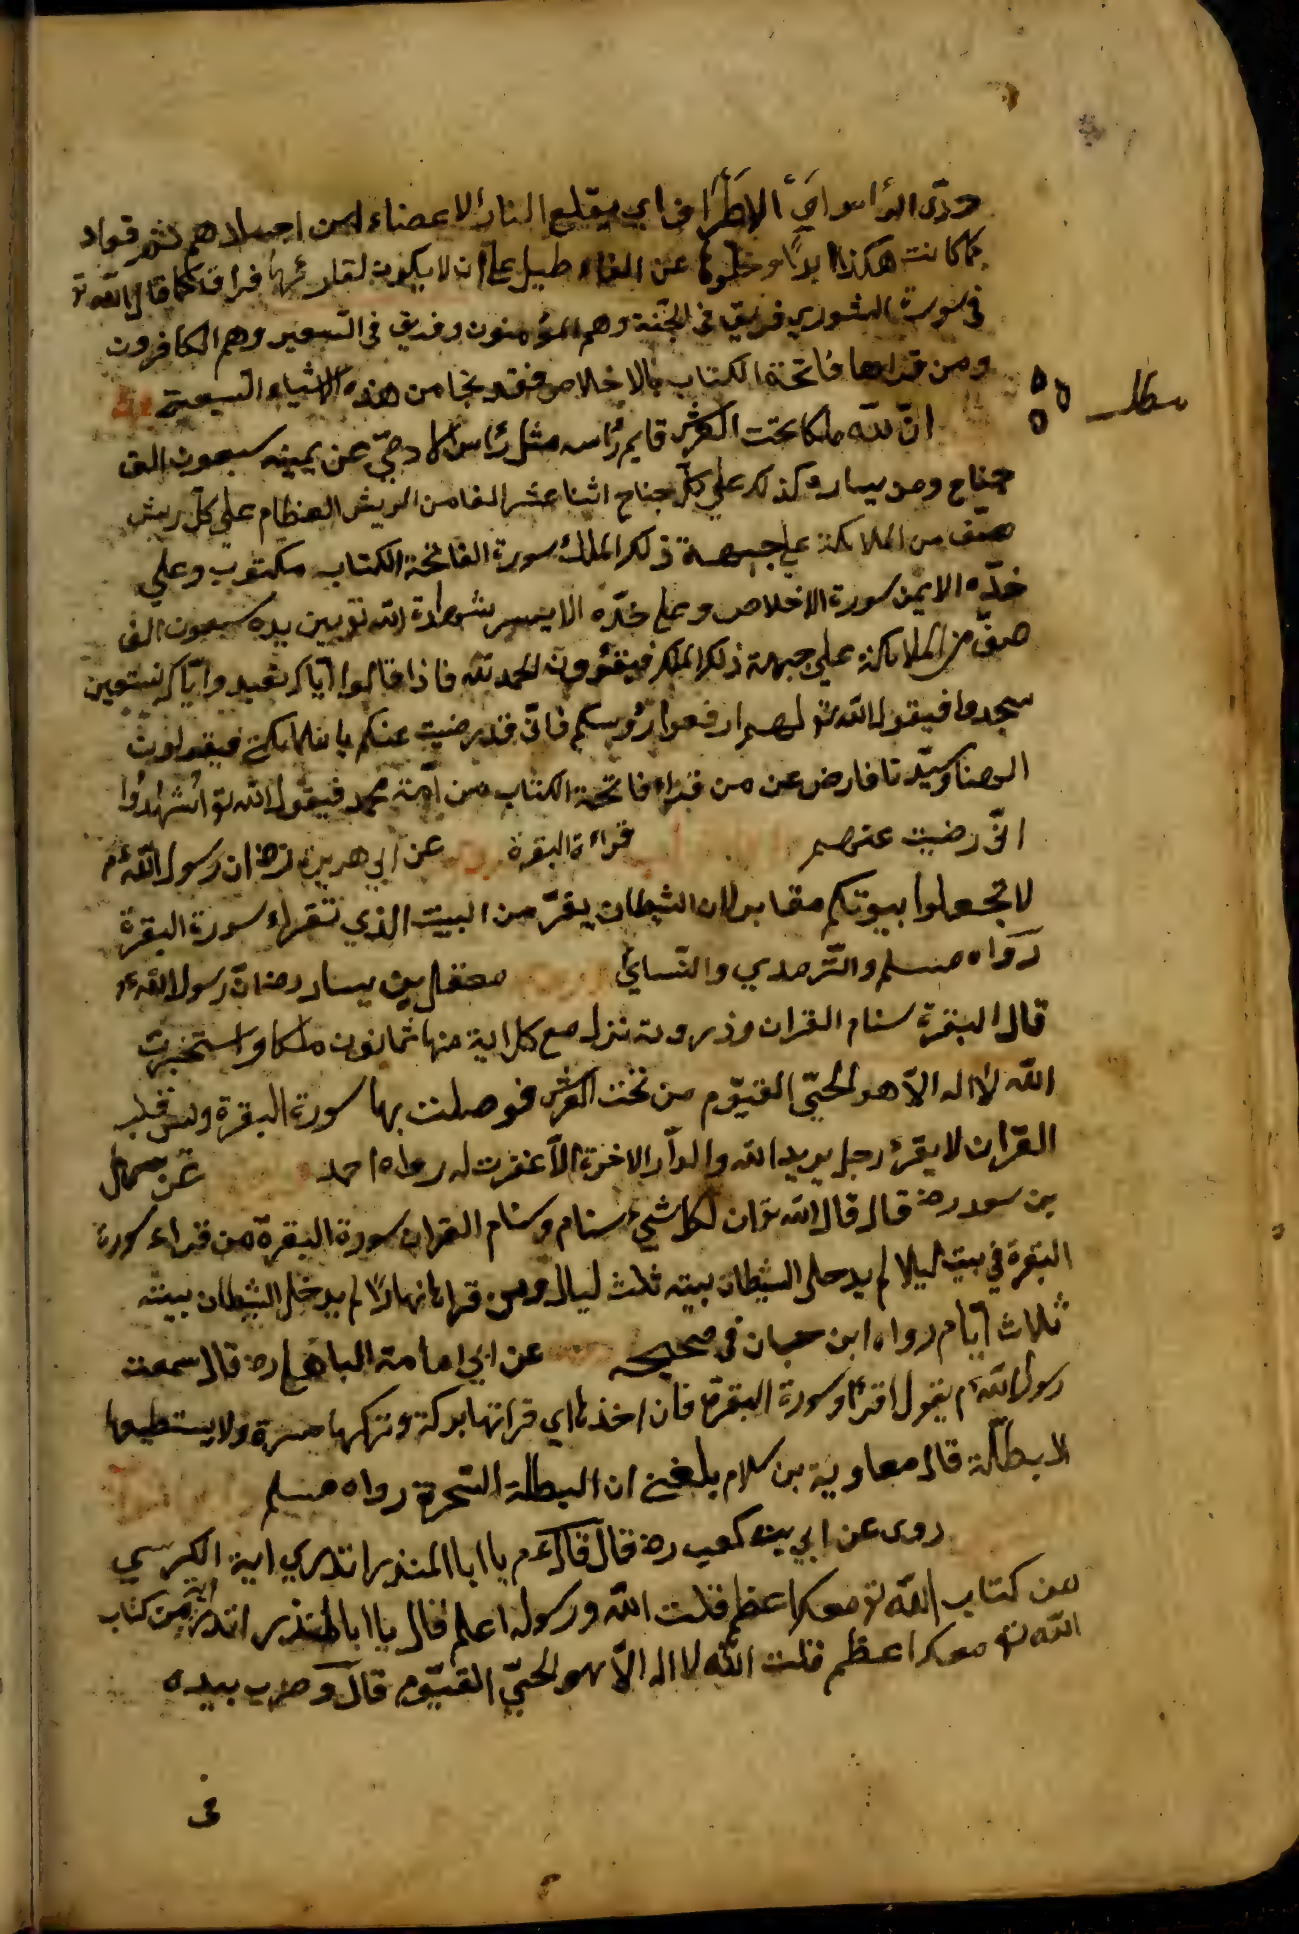 الاطراف اي يقلع النار الاعضاء من اجسادهم ثم تعاد
كما كانت هكذا ابدا وخلوها عن الفاء دليل على ان لا يكون لقارئها فراق كما قال الله تع
في سورة الشوري فريق في الجنة وهم المؤمنون وفريق في السعير وهم الكافرون
ومن قراها فاتحة الكتاب بالاخلاص فقد نجا من هذه الاشياء السبعة
مطلب
ان لله ملكا تحت العرش قايم رأسه مثل رأس الادمي عن يمينه سبعون الف
جناح ومن يساره كذلك على كل جناح اثنا عشر الفا من الريش العظام على كل ريش
صف من الملائكة على جبهة ذلك الملك سورة الفاتحة الكتاب مكتوب وعلي
خده الايمن سورة الاخلاص وعلى خده الايسر شهادة الله تع بين يده سبعون الف
صف من الملائكة على جبهة ذلك الملك فيقرؤون الحمد لله فاذا قالوا اياك نعبد واياك نستعين
سجدوا فيقول الله تع لهم ارفعوا رؤسكم فاني قد رضيت عنكم يا ملائكتي فيقولون
الهنا وسيدنا فارض عن من قراء فاتحة الكتاب من امة محمد فيقول الله تع اشهدوا
اني رضيت عنهم قراءة البقرة عن ابي هريرة رض ان رسول الله عم
لا تجعلوا بيوتكم مقابر ان الشيطان يفر من البيت الذي تقراء سورة البقرة
رواه مسلم والترمدي والنسائي معقل بن يسار رض ان رسول الله عم
قال البقرة سنام القران وذروته نزل مع كل اية منها ثمانون ملكا واستخرجت
الله لا اله الا هو الحي القيوم من تحت العرش فوصلت بها سورة البقرة ويس قلب
القران لا يقرؤ رجل يريد الله والدار الاخرة الا غفرت له رواه احمد عن سهل
بن سعد رض قال قال الله تع ان لكل شيء سنام وسنام القران سورة البقرة من قراء سورة
البقرة في بيته ليلا لم يدخل الشيطان بيته ثلاث ليال ومن قراها نهارا لم يدخل الشيطان بيته
ثلاث ايام رواه ابن حبان في صحيحه عن ابي امامة الباهلي رض قال سمعت
رسول الله عم يقول اقرؤا سورة البقرة فان اخذها اي قراتها بركة وتركها حسرة ولا يستطيعها
لا بطلة قال معاوية بن سلام بلغني ان البطلة السحرة رواه مسلم
روى عن ابي بن كعب رض قال قال عم يا ابا المنذر اتدري اية الكرسي
من كتاب الله تع معك اعظم قلت الله ورسوله اعلم قال يا ابا المنذر اتدري اي من كتاب
الله تع معك اعظم قلت الله لا اله الا هو الحي القيوم قال وضرب بيده
في